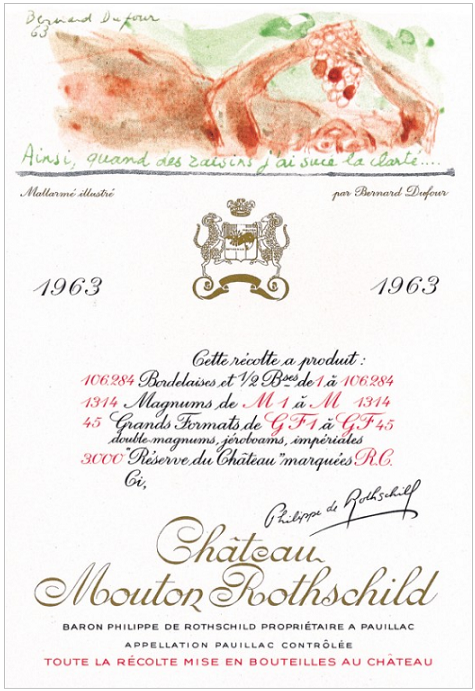 Bernard Dufour
63
Ainsi, quand des raisins j'ai sucé la clarté....
Mallarmé illustré
par Bernard Dufour
1963
1963
Cette récolte a produit :
106.284 Bordelaises et 1/2 Bses de 1 à 106.284
1314 Magnums de M 1 à M 1314
45 Grands Formats de GF1 à GF45
double-magnums, jéroboams, impériales
3000 "Réserve du Château" marquées R.C.
Ci,
Philippe de Rothschild
Château
Mouton Rothschild
BARON PHILIPPE DE ROTHSCHILD PROPRIÉTAIRE A PAUILLAC
APPELLATION PAUILLAC CONTRÔLÉE
TOUTE LA RÉCOLTE MISE EN BOUTEILLES AU CHÂTEAU